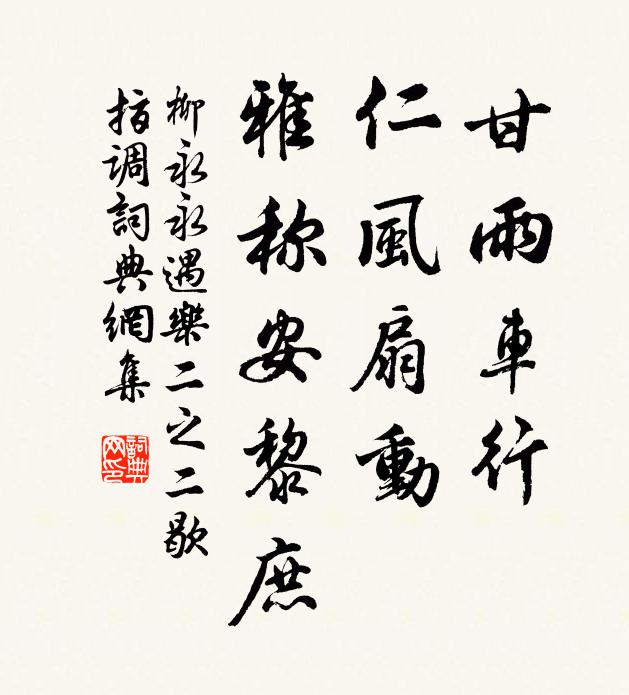 甘雨車行
仁風扇動
雅称安黎庶
柳永永遇樂二之二歇
指調詞典網集
詞典
网印